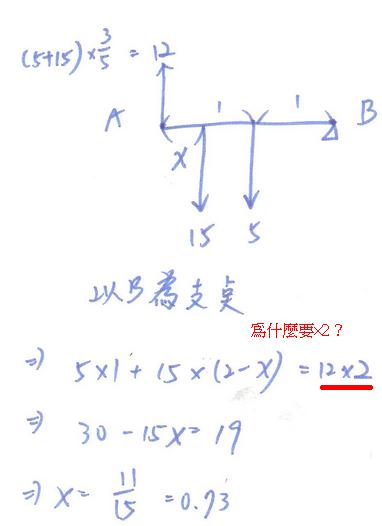 (5+15)×3/5 = 12
1 1
A B
X
15 5
以B為支點
為什麼要×2？
⇒ 5×1+15×(2-X) = 12×2
⇒ 30-15X=19
⇒ X= 11/15 =0.73